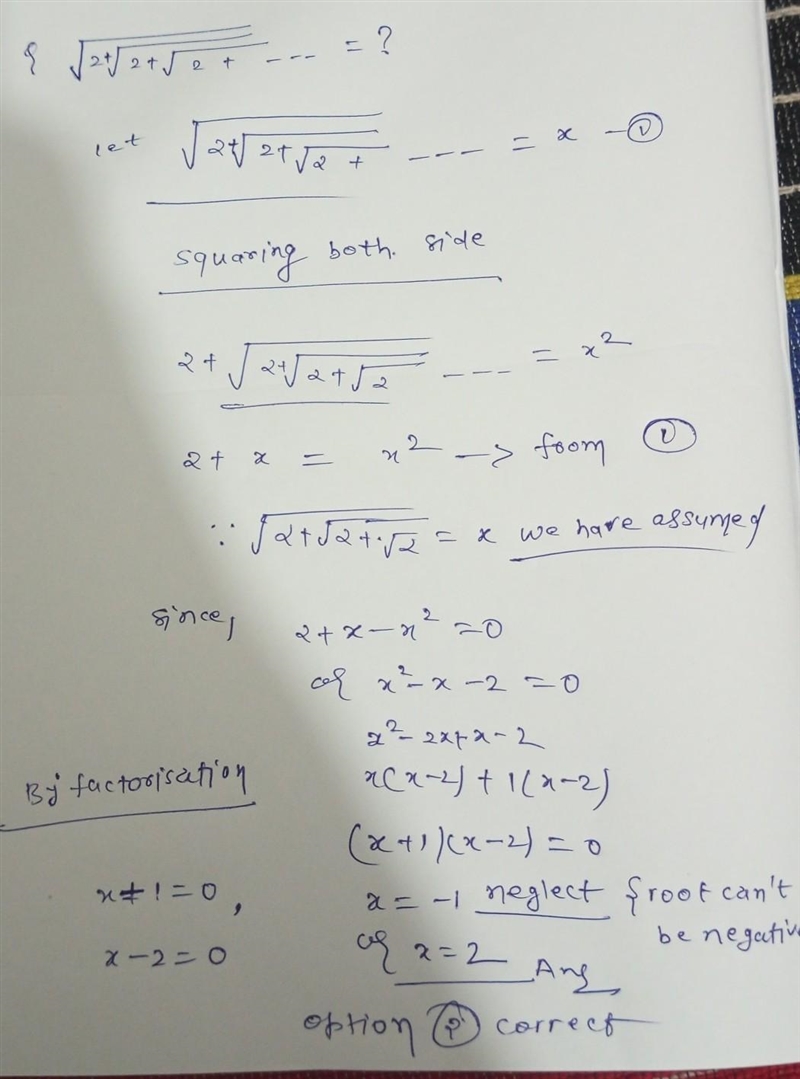 { √2+√2+√2+ --- = ?
let √2+√2+√2+ ---- = x -①
squaring both. side
2+√2+√2+√2 ---- = x²
2+ x = x² -> from ①
∵ √2+√2+.√2 = x we have assumed
since, 2+x-x² =0
or x²-x-2 =0
x²-2x+x-2
By factorisation x(x-2)+1(x-2)
(x+1)(x-2)=0
x+1=0, x=-1 neglect {root can't be negative
x-2=0 or x=2 Ans
option correct